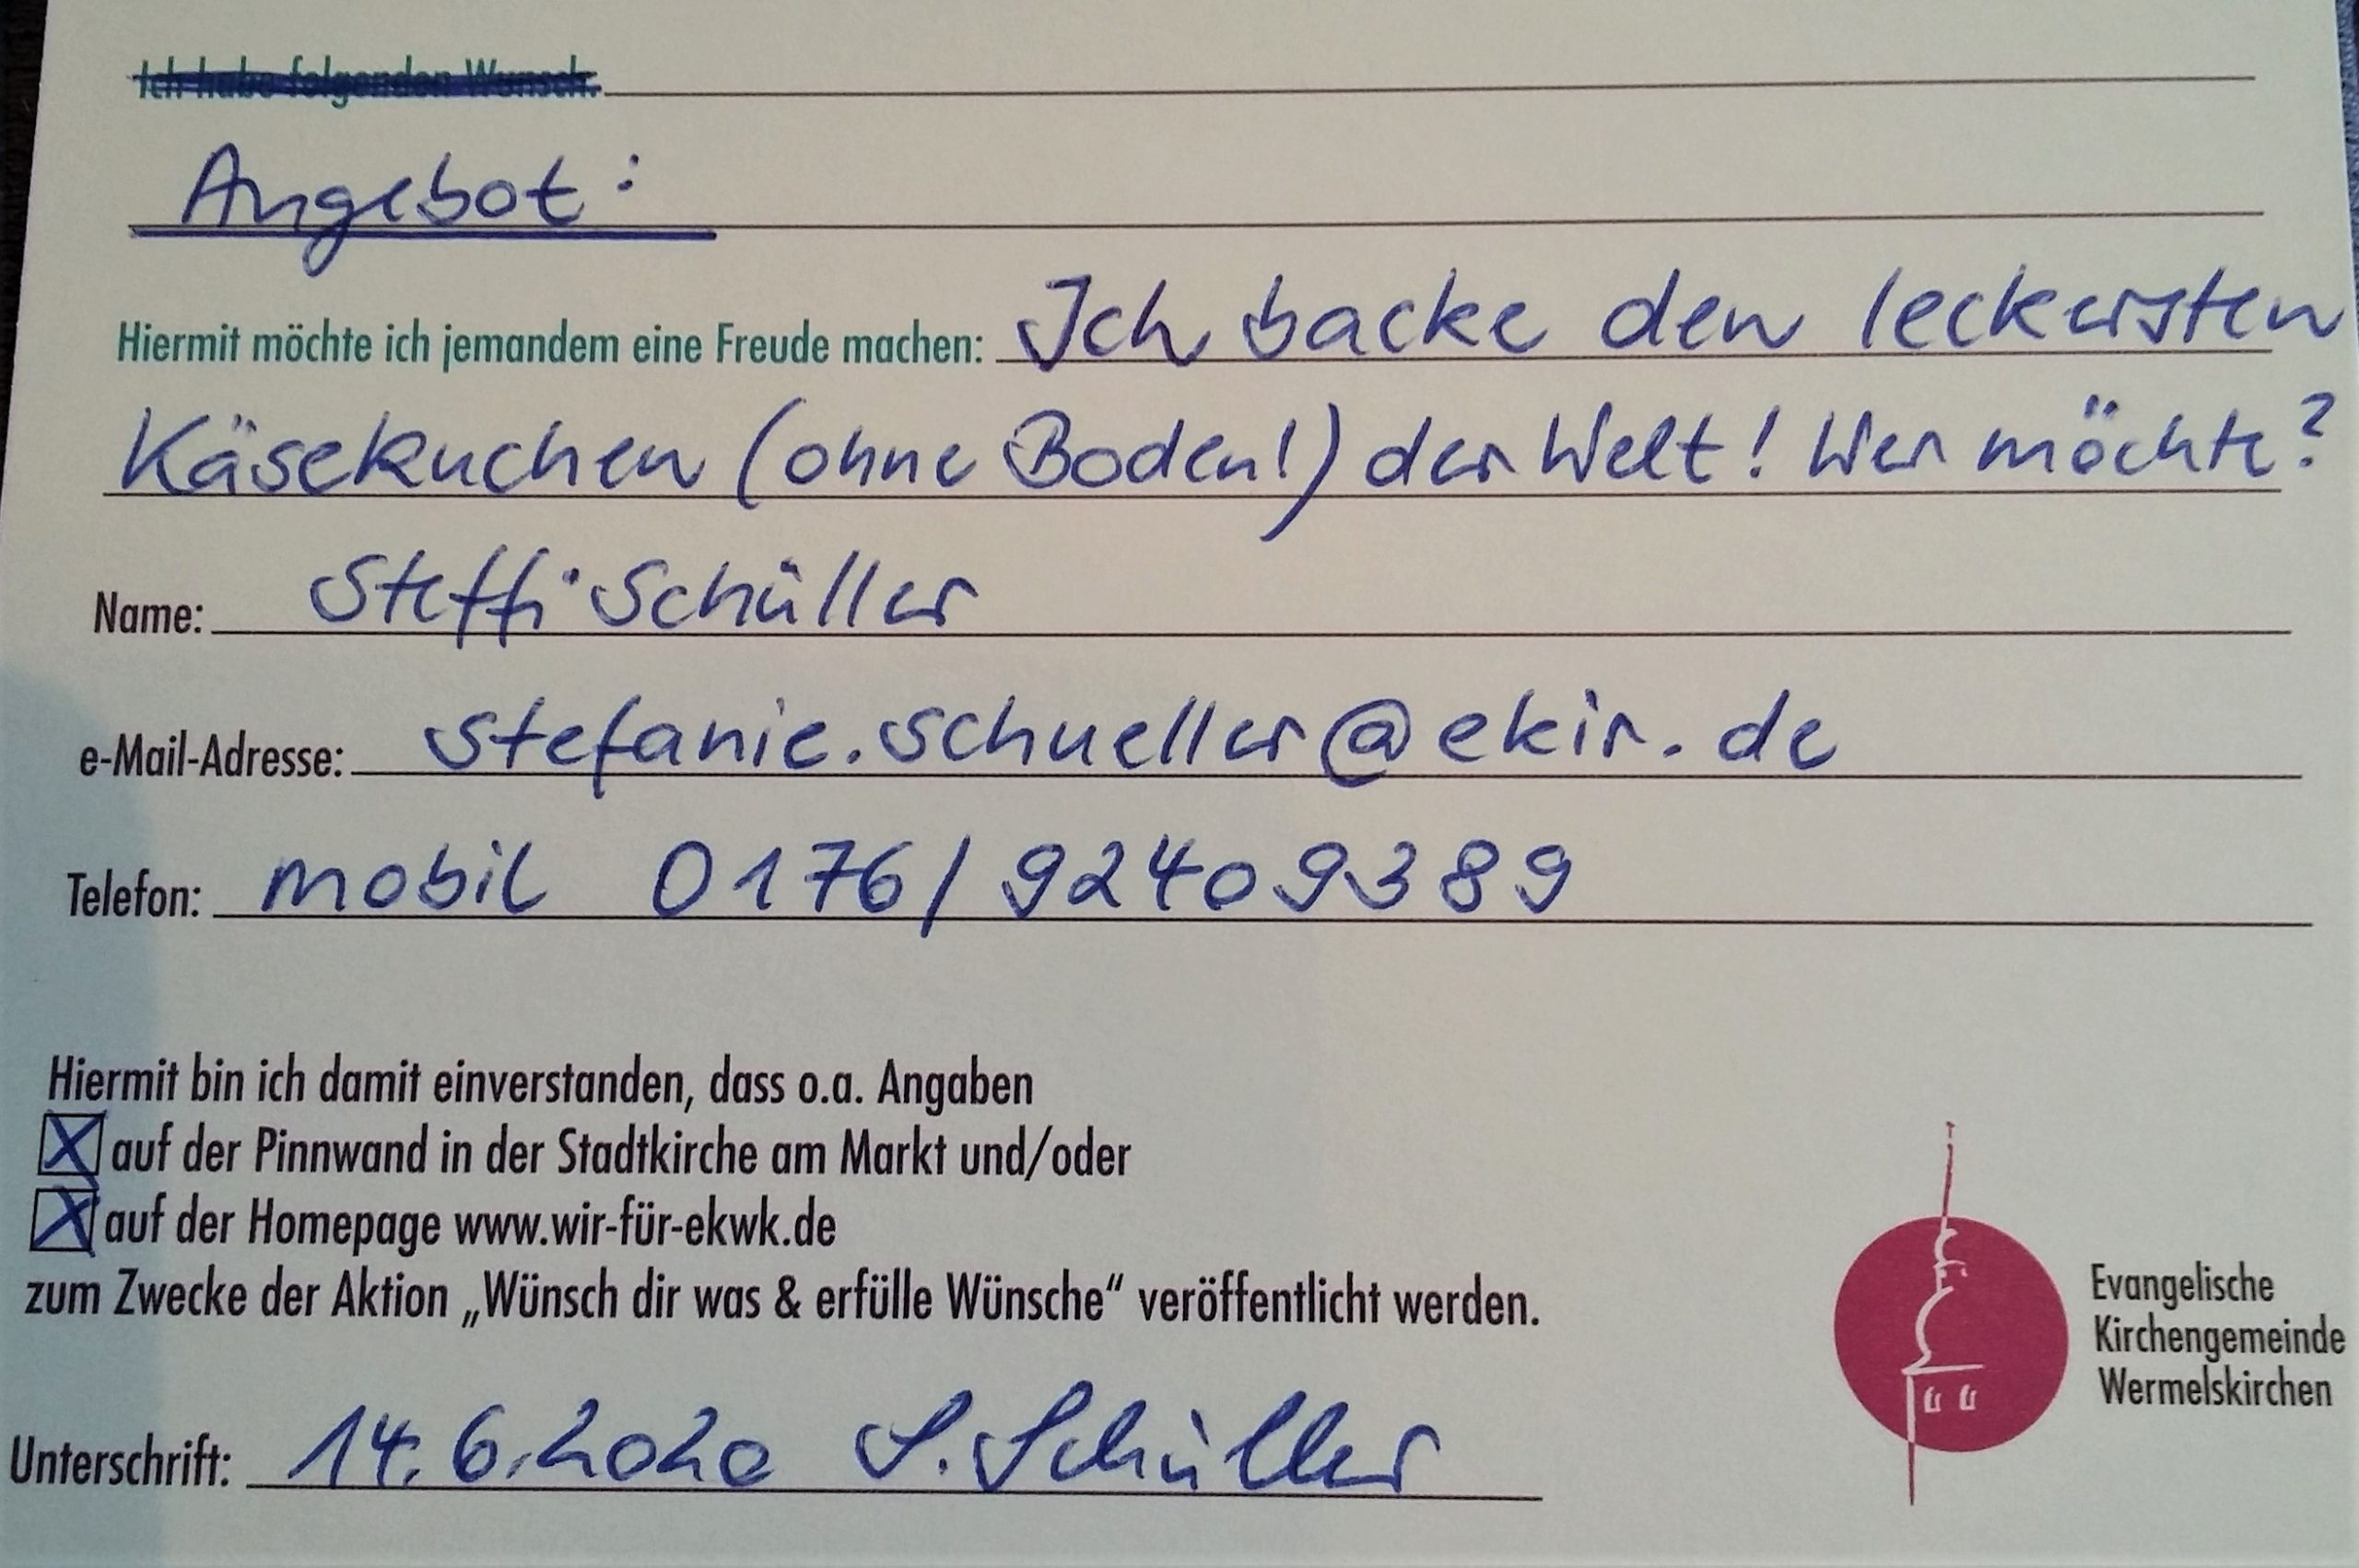 Ich habe folgenden Wunsch:
Angebot:
Hiermit möchte ich jemandem eine Freude machen: Ich backe den leckersten
Käsekuchen (ohne Boden!) der Welt! Wer möchte?
Name: Steffi Schüller
e-Mail-Adresse: stefanie.schueller@ekir.de
Telefon: mobil 0176/92409389
Hiermit bin ich damit einverstanden, dass o.a. Angaben
X auf der Pinnwand in der Stadtkirche am Markt und/oder
X auf der Homepage www.wir-für-ekwk.de
zum Zwecke der Aktion „Wünsch dir was & erfülle Wünsche“ veröffentlicht werden.
Evangelische
Kirchengemeinde
Wermelskirchen
Unterschrift: 14.6.2020 S. Schüller